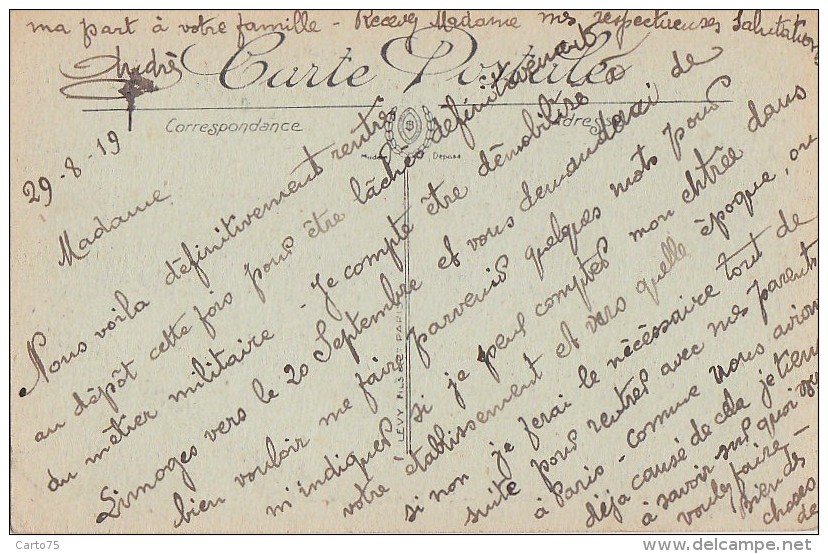 Carte Postale
Correspondance
Adresse
Modèle Déposé
LÉVY FILS & Cie PARIS
29-8-19
Madame
Nous voila définitivement rentrés
au dépôt cette fois pour être lâchés définitivement
du métier militaire - Je compte être démobilisé à
Limoges vers le 20 Septembre et vous demanderai de
bien vouloir me faire parvenir quelques mots pour
m'indiquer si je peux compter mon entrée dans
votre établissement et vers quelle époque, ou
si non je ferai le nécessaire tout de
suite pour rentrer avec mes parents
à Paris - comme nous avions
déjà causé de cela je tiens
à savoir sur quoi
vous faire -
Bien des
choses
de
ma part à votre famille - Recevez Madame mes respectueuses Salutations
André
Carto75
© delcampe.net